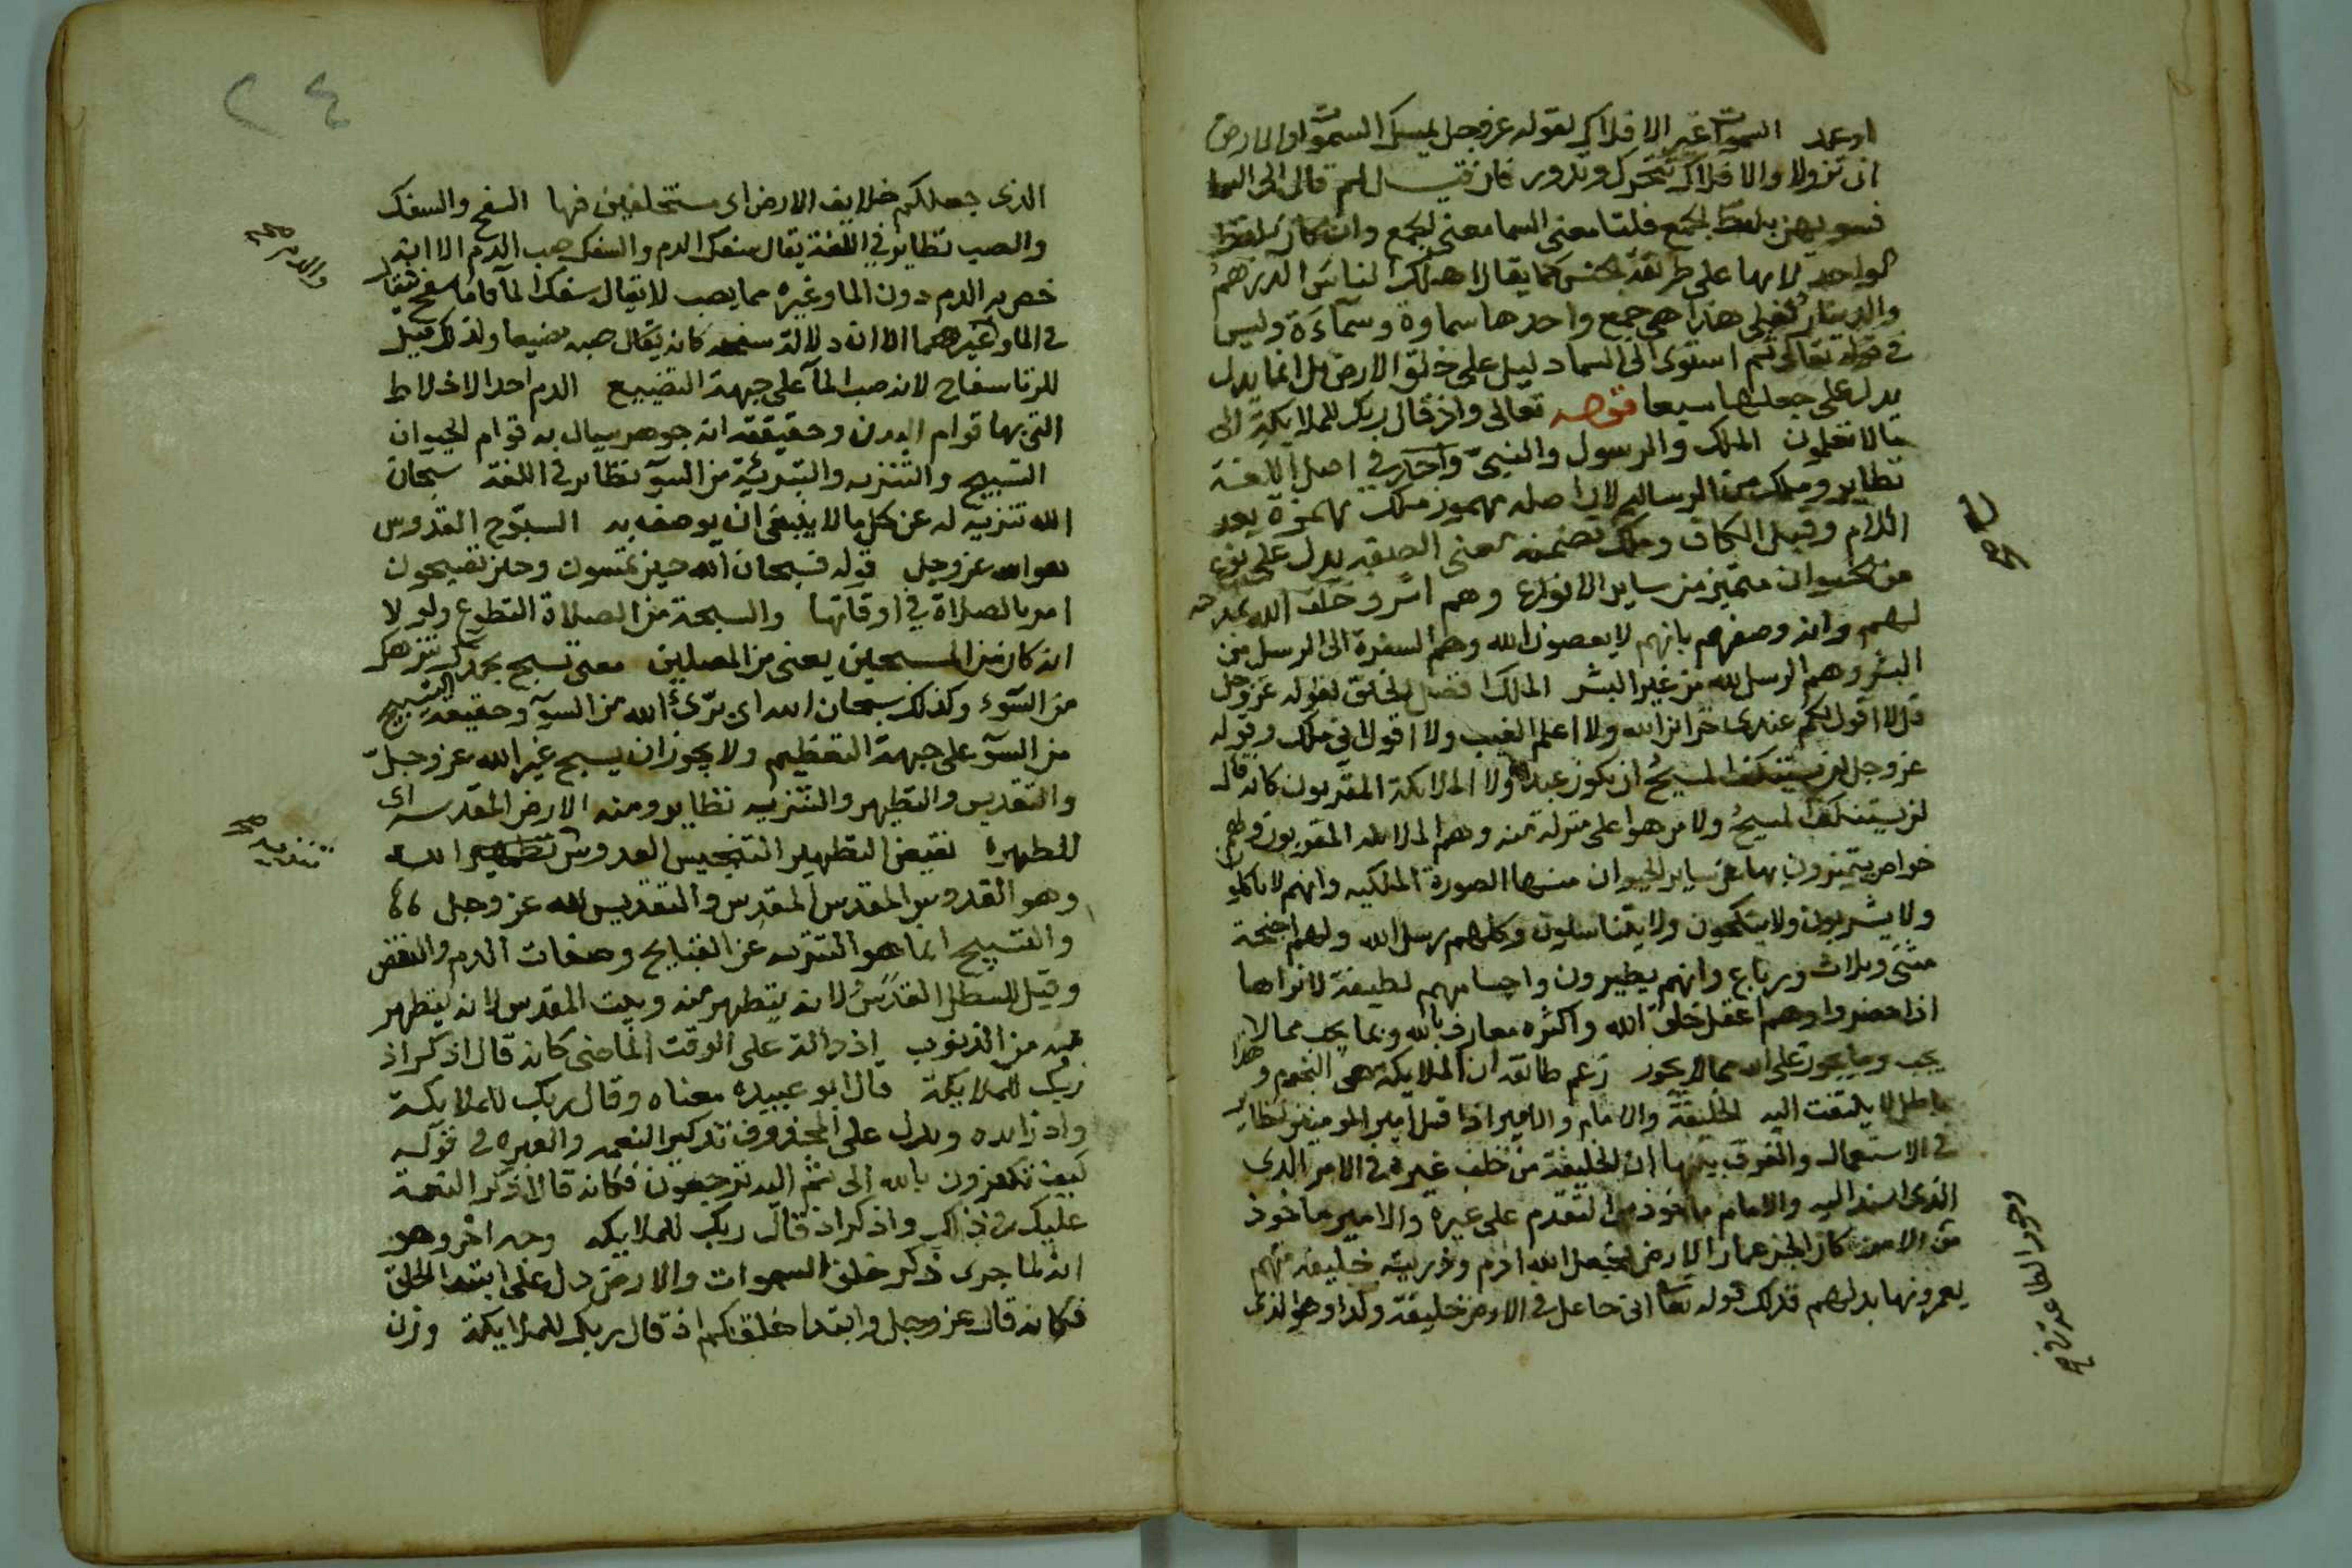 او عمد السموات غير الافلاك لقوله عز وجل يمسك السموات والارض
ان تزولا والافلاك تتحرك وتدور فان قيل لم قال الى السما
فسويهن بلفظ الجمع قلنا معنى السما معنى الجمع وان كان بلفظ
الواحد لانها على طريقة الجنس كما يقال اهلك الناس الدرهم
والدينار وقيل هذا هي جمع واحدها سماوة وسمآءة وليس
في قوله تعالى ثم استوى الى السما دليل على خلق الارض بل انما يدل
يدل على جعلها سبعا قوله تعالى واذ قال ربك للملايكة الى
ما لا تعلمون الملك والرسول والنبي واحد في اصل اللغة
نظاير وملك من الرسالة لان اصله مهموز ملئك بهمزة بعد
اللام وقبل الكاف وملك تضمنه معنى الصفة يدل على نوع
من الحيوان متميز من ساير الانواع وهم اسر وخلف الله
لهم وانه وصفهم بانهم لا يعصون الله وهم السفرة الى الرسل من
البشر وهم الرسل لله من غير البشر الملك افضل الخلق لقوله عز وجل
قل لا اقول لكم عندى خزائن الله ولا اعلم الغيب ولا اقول اني ملك وقوله
عز وجل لن يستنكف المسيح ان يكون عبدا لله ولا الملائكة المقربون كانه قال
لن يستنكف المسيح ولا من هو اعلى منزلة منه وهم الملائكة المقربون ولهم
خواص يتميزون بها عن ساير الحيوان منها الصورة الملكيه وانهم لا ياكلو
ولا يشربون ولا ينكحون ولا يتناسلون وكلهم رسل الله ولهم اجنحة
مثنى وثلاث ورباع وانهم يطيرون واجسامهم لطيفة لا نراها
اذا حضروا وهم اعقل خلق الله واكثره معارف بالله وبما يجب مما لا
يجب وما يجوز على الله مما لا يجوز زعم طائفة ان الملايكة هي النجوم وهذا
باطل لا يلتفت اليه الخليفة والامام والامير اذا قيل امير المومنين نظاير
في الاستعمال والفرق بينها ان الخليفة من خلف غيره في الامر الذى
الذى اسند اليه والامام ماخوذ من التقدم على غيره والامير ماخوذ
من الامر كان الجن عمار الارض فجعل الله ادم وذريته خليفة منهم
يعمرونها بدلهم فذلك قوله تعا انى جاعل في الارض خليفة وكذا وهو الذى
٢٤
الذى جعلكم خلايف الارض اى مستخلفين فيها السفح والسفك
والصب نظاير في اللغة يقال سفك الدم والسفك صب الدم الا انه
خص به الدم دون الما وغيره مما يصب لا يقال سفك المآ واما سفح فيقال
في الما وغيرهما الا ان دلالة سفحه كانه يقال صبه مضيعا ولذلك قيل
للزنا سفاح لانه صب المآ على جهة التضييع الدم احد الاخلاط
التى بها قوام البدن وحقيقته انه جوهر سيال به قوام الحيوان
التسبيح والتنزيه والتبرئة من السوٓ نظاير في اللغة سبحان
الله تنزيه له عن كل ما لا ينبغي ان يوصف به السبوح القدوس
هو الله عز وجل قوله فسبحان الله حين تمسون وحين تصبحون
امر بالصلاة في اوقاتها والسبحة من الصلاة التطوع ولولا
انه كان من المسبحين يعنى من المصلين معنى نسبح بحمدك ننزهك
من السوٓء وكذلك سبحان الله اى برئ الله من السوٓ وحقيقة التسبيح
من السوٓ على جهة التعظيم ولا يجوز ان يسبح غير الله عز وجل
والتقديس والتطهير والتنزيه نظاير ومنه الارض المقدسه اى
المطهرة نقيض التطهير التنجيس القدوس تطهير الله
وهو القدوس المقدس المقدس والتقديس لله عز وجل
والتسبيح انما هو التنزيه عن القبايح وصفات الذم والنقض
وقيل للسطل القدس لانه يتطهر منه وبيت المقدس لانه يتطهر
فيه من الذنوب اذ دالة على الوقت الماضى كانه قال اذكر اذ
ربك للملايكة قال ابو عبيده معناه وقال ربك للملايكة
واذ زايده ويدل على المحذوف تذكير النعمه والعبره في قوله
كيف تكفرون بالله الى ثم اليه ترجعون فكانه قال اذكر النعمة
عليك في ذلك واذكر اذ قال ربك للملايكه وجه اخر وهو
انه لما جرى ذكر خلق السموات والارض دل على ابتدا الخلق
فكانه قال عز وجل وابتدا خلقكم اذ قال ربك للملايكة وزن